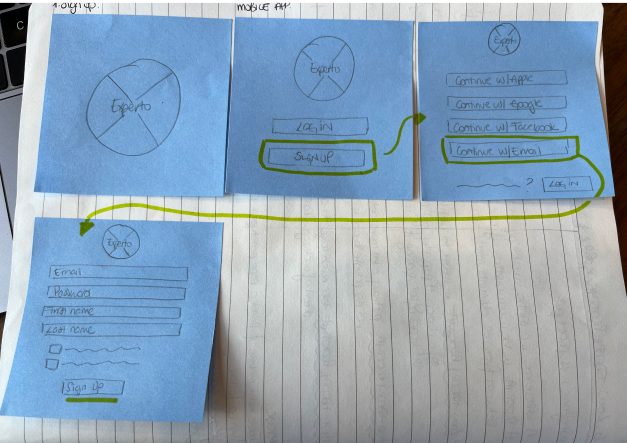 1. Sign up.
MOBILE APP.
C
Experto
Experto
LOG IN
SIGN UP
Experto
Continue w/Apple
Continue w/ Google
Continue w/ Facebook
Continue w/Email
? LOG IN
Experto
Email
Password
First name
Last name
Sign Up